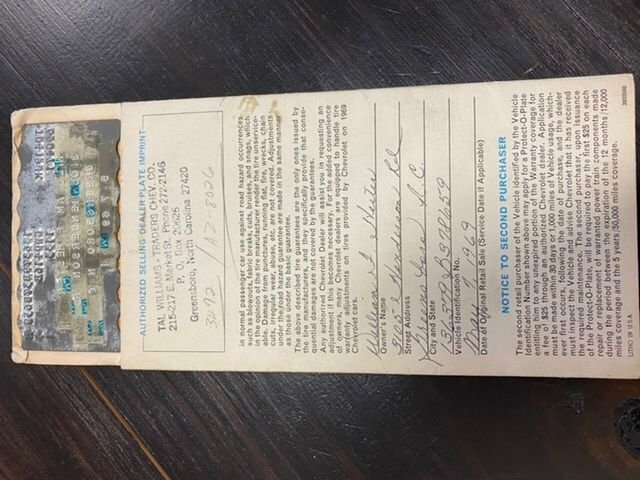 AUTHORIZED SELLING DEALER IMPRINT
TAL WILLIAMS-TRADERS CHEV. CO.
215-217 E. Market Phone 272-2146
P. O. Box 20626
Greensboro, North Carolina 27420
in normal passenger car use against road hazard occurrences
such as blowouts, fabric breaks, cuts, bruises, and snags, which
in the opinion of the tire manufacturer render the tire unservice-
able. Damage from punctures, running flat, fire, wrecks, chain
cuts, irregular wear, abuse, etc. are not covered. Adjustments
under the road hazard guarantee are made in the same manner
as those under the basic guarantee.
The above described tire guarantees are the only ones issued by
the tire manufacturers, and they specifically provide that conse-
quential damages not covered by the guarantees.
Any authorized Chevrolet Dealer will assist you in requesting an
adjustment if this becomes necessary. For the added convenience
of owners, many Chevrolet dealers are equipped to handle tire
warranty adjustments on tires provided by Chevrolet on 1969
Chevrolet cars.
William
Owner's Name
Street Address
N.C.
City and State
Vehicle Identification No.
1969
Date of Original Retail Sale (Service Date if Applicable)
NOTICE TO SECOND PURCHASER
The second retail purchaser of the Vehicle identified by the Vehicle
Identification Number shown above may apply for a Protect-O-Plate
entitling him to any unexpired portion of the Warranty coverage for
a fee of $25 through an authorized Chevrolet dealer. Application
must be made within 30 days or 1,000 miles of vehicle usage, which-
ever first occurs, following the date of purchase, and the dealer
must inspect the Vehicle and advise Chevrolet that it has received
the required maintenance. The second purchaser, upon issuance
of the Protect-O-Plate, will be required to pay the first $25 on each
repair or replacement of warranted power train components made
during the period between the expiration of the 12 months/12,000
miles coverage and the 5 year/50,000 miles coverage.
LITHO IN U.S.A.